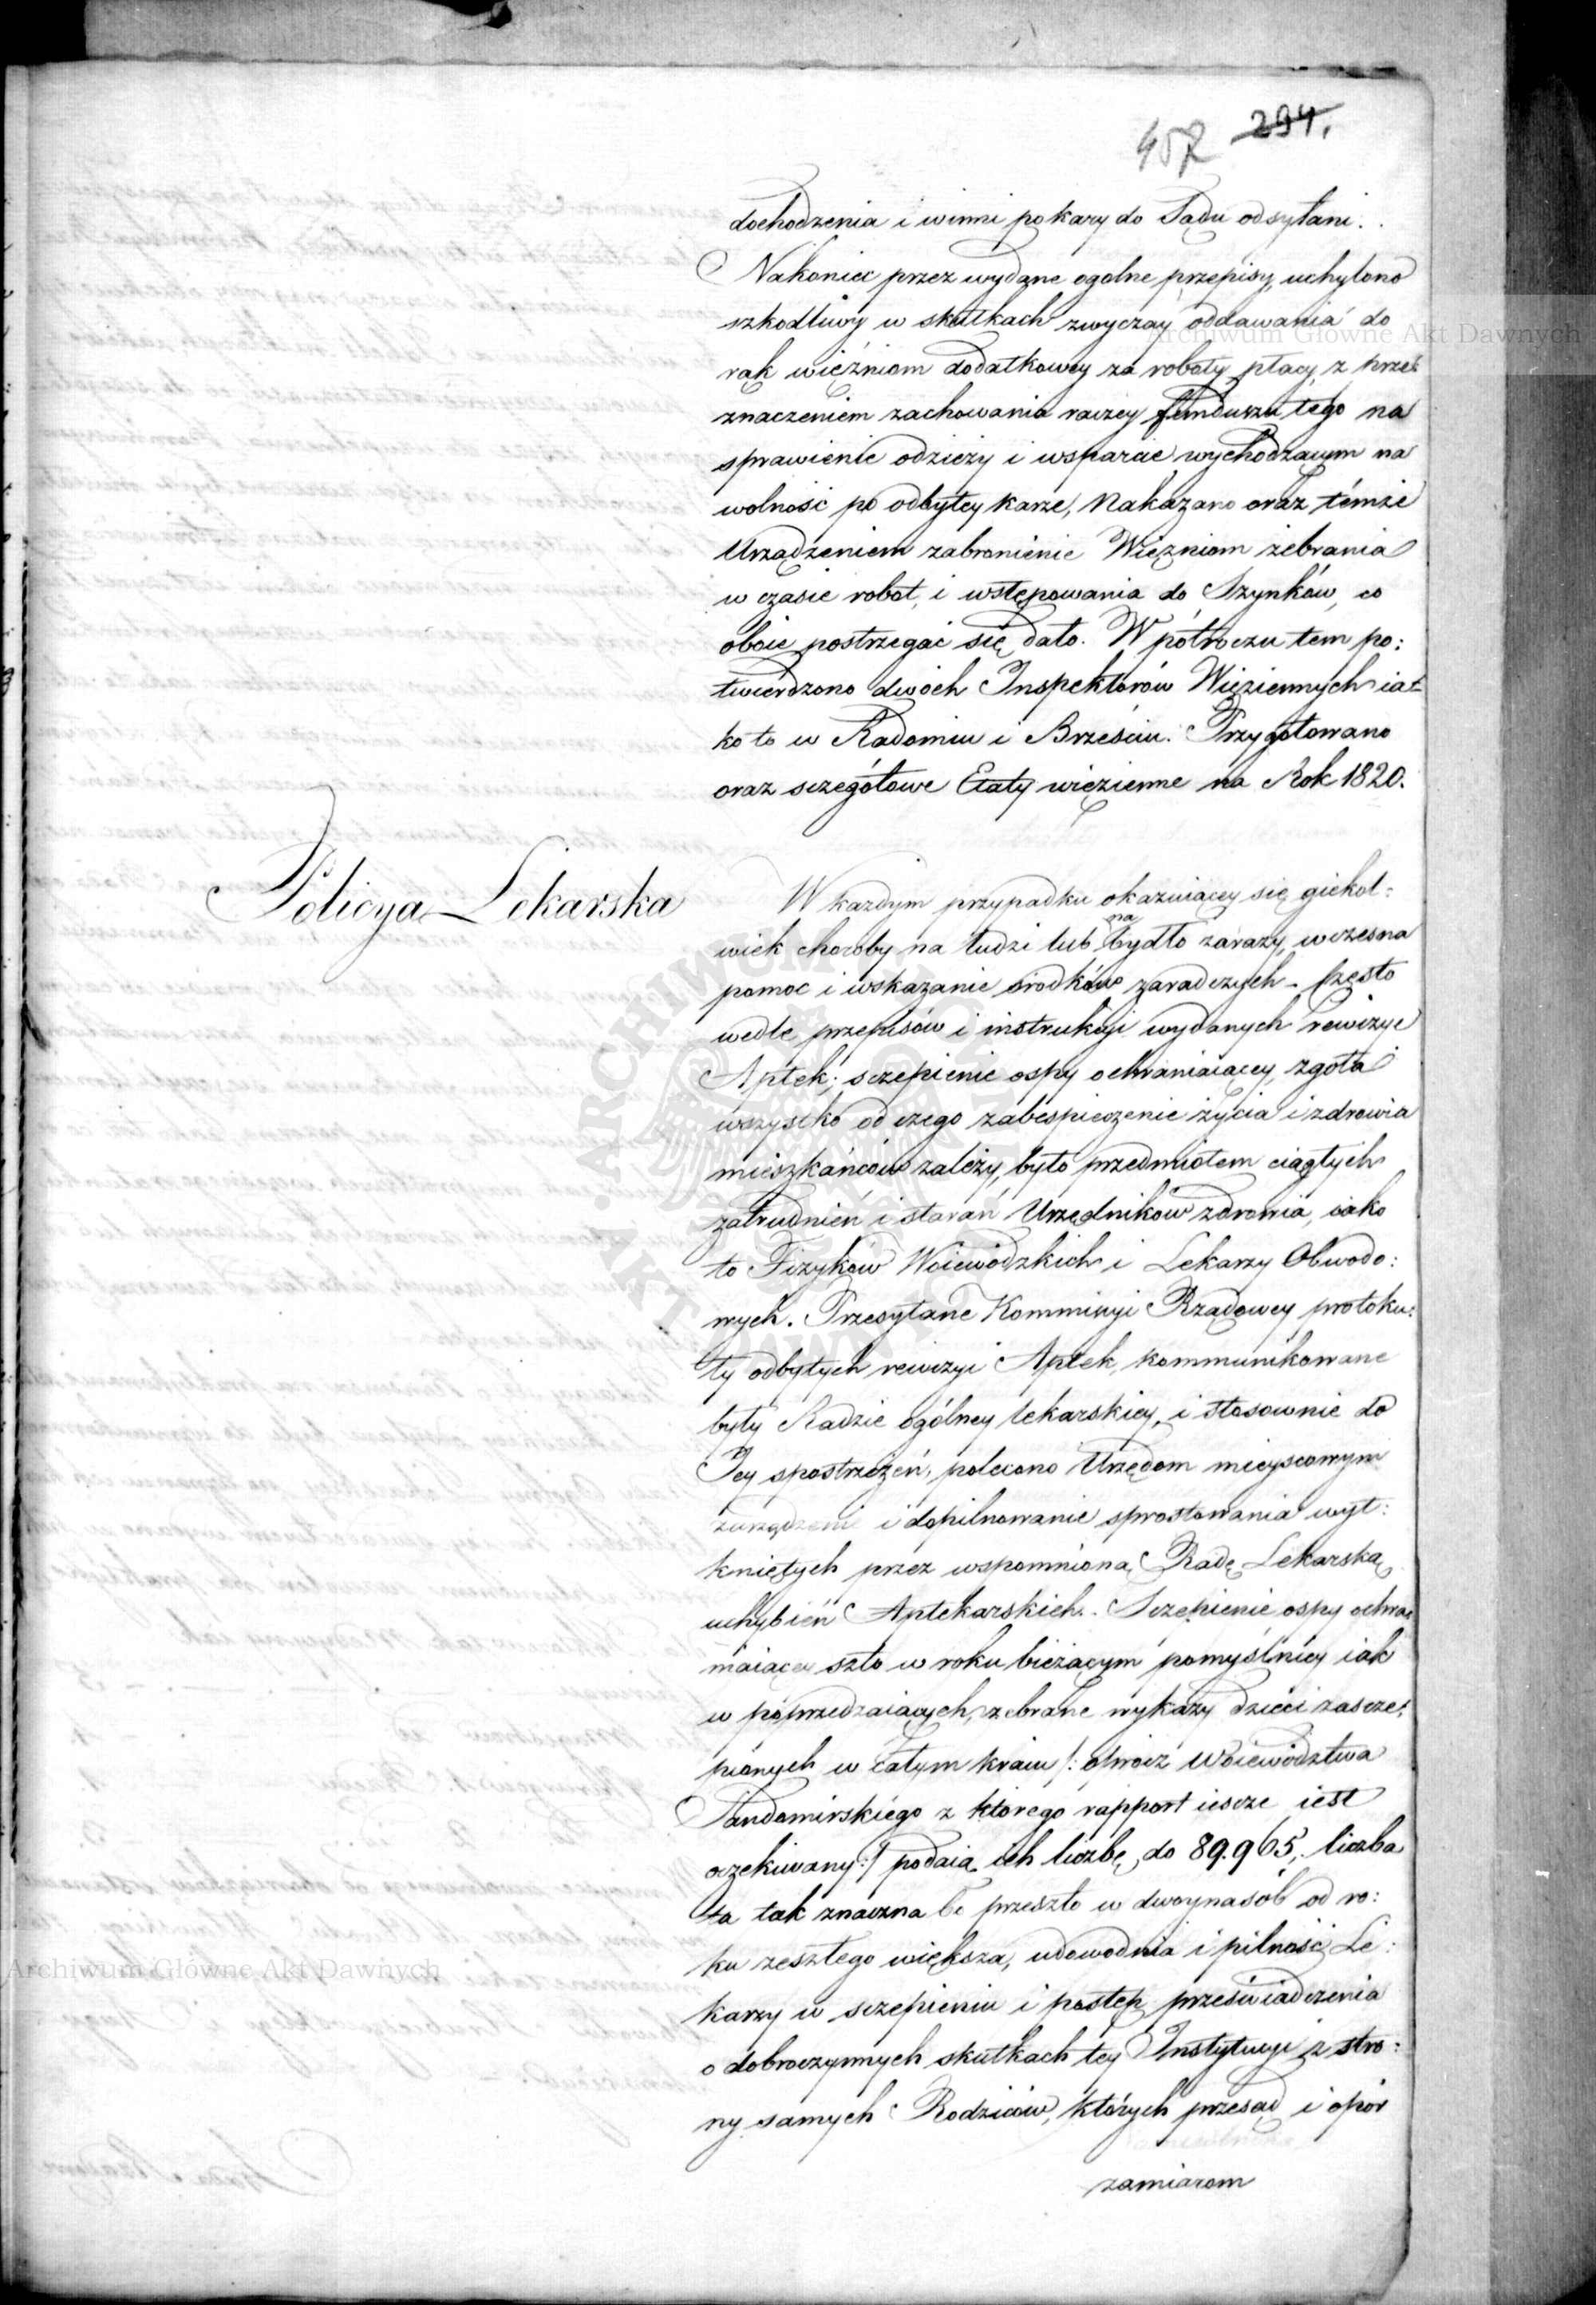 457 294.
dochodzenia i winni pokary do Sądu odsyłani.
Nakoniec przez wydane ogolne przepisy, uchylono
szkodliwy w skutkach zwyczay oddawania do
rąk więźniom dodatkowey za roboty płacy, z prze=
znaczeniem zachowania raczey funduszu tego na
sprawienie odzieży i wsparcie wychodzącym na
wolność po odbytey karze, Nakazano oraz témże
Urządzeniem zabronienie Więzniom żebrania
w czasie robot, i wstępowania do Szynków, co
oboie postrzegać się dało. W półroczu tem po:
twierdzono dwóch Inspektorów Więziennych ia=
ko to w Radomiu i Brześciu. Przygotowano
oraz sczegółowe Etaty więzienne na Rok 1820.
Policya Lekarska
W każdym przypadku okazuiącey się giekol=
wiek choroby na ludzi lub na bydło zarazy, wczesna
pomoc i wskazanie srodków zaradczych - często
wedle przepisów i instrukcji wydanych rewizye
Aptek; sczepienie ospy ochraniaiącey, zgoła
wszystko od czego zabespieczenie życia i zdrowia
mieszkańców zależy, było przedmiotem ciągłych
zatrudnień i starań Urzędników zdrowia, iako
to Fizyków Woiewódzkich i Lekarzy Obwodo:
wych. Przesyłane Kommissyi Rządowey protoku:
ły odbytych rewizyi Aptek, kommunikowane
były Radzie ogólney lekarskiey, i stosownie do
Jey spostrzeżeń, polecono Urzędom mieyscowym
zarządzenie i dopilnowanie sprostowania wyt:
kniętych przez wspomnioną Radę Lekarską
uchybień Aptekarskich. Sczepienie ospy ochra=
niaiącey szło w roku bieżącym pomyślniey iak
w poprzedzaiących, zebrane wykazy dzieci zascze:
pionych w całym kraiu /: oprócz Woiewództwa
Sandomirskiego z którego rapport iescze iest
oczekiwany :/ podaią ich liczbę do 89.965; liczba
ta tak znaczna bo przeszło w dwoynasób od ro:
ku zeszłego większa, udowodnia i pilność Le:
karzy w sczepieniu i postęp przeświadczenia
o dobroczynnych skutkach tey Instytucyi z stro:
ny samych Rodziców, których przesąd i opór
zamiarom
Archiwum Główne Akt Dawnych
Archiwum Główne Akt Dawnych